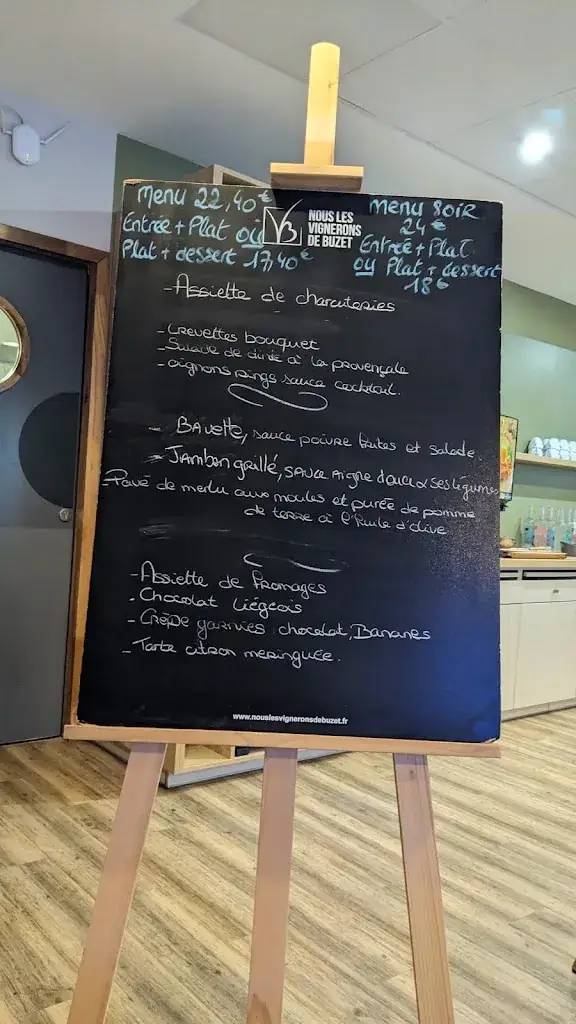 Menu 22,40€
Entrée + Plat ou
Plat + dessert 17,40€
VB
NOUS LES
VIGNERONS
DE BUZET
menu SOIR
24€
Entrée + Plat
ou Plat + dessert
18€
-Assiette de charcuteries
-Crevettes bouquet
-Salade de dinde à la provençale
-oignons rings sauce cocktail.
- Bavette, sauce poivre frites et salade
- Jambon grillé, sauce Aigre douce & ses légumes
Pavé de merlu aux moules et purée de pomme
de terre à l'huile d'olive
-Assiette de fromages
-Chocolat liégeois
-Crêpe garnies chocolat, Bananes
-Tarte citron meringuée.
www.nouslesvigneronsdebuzet.fr